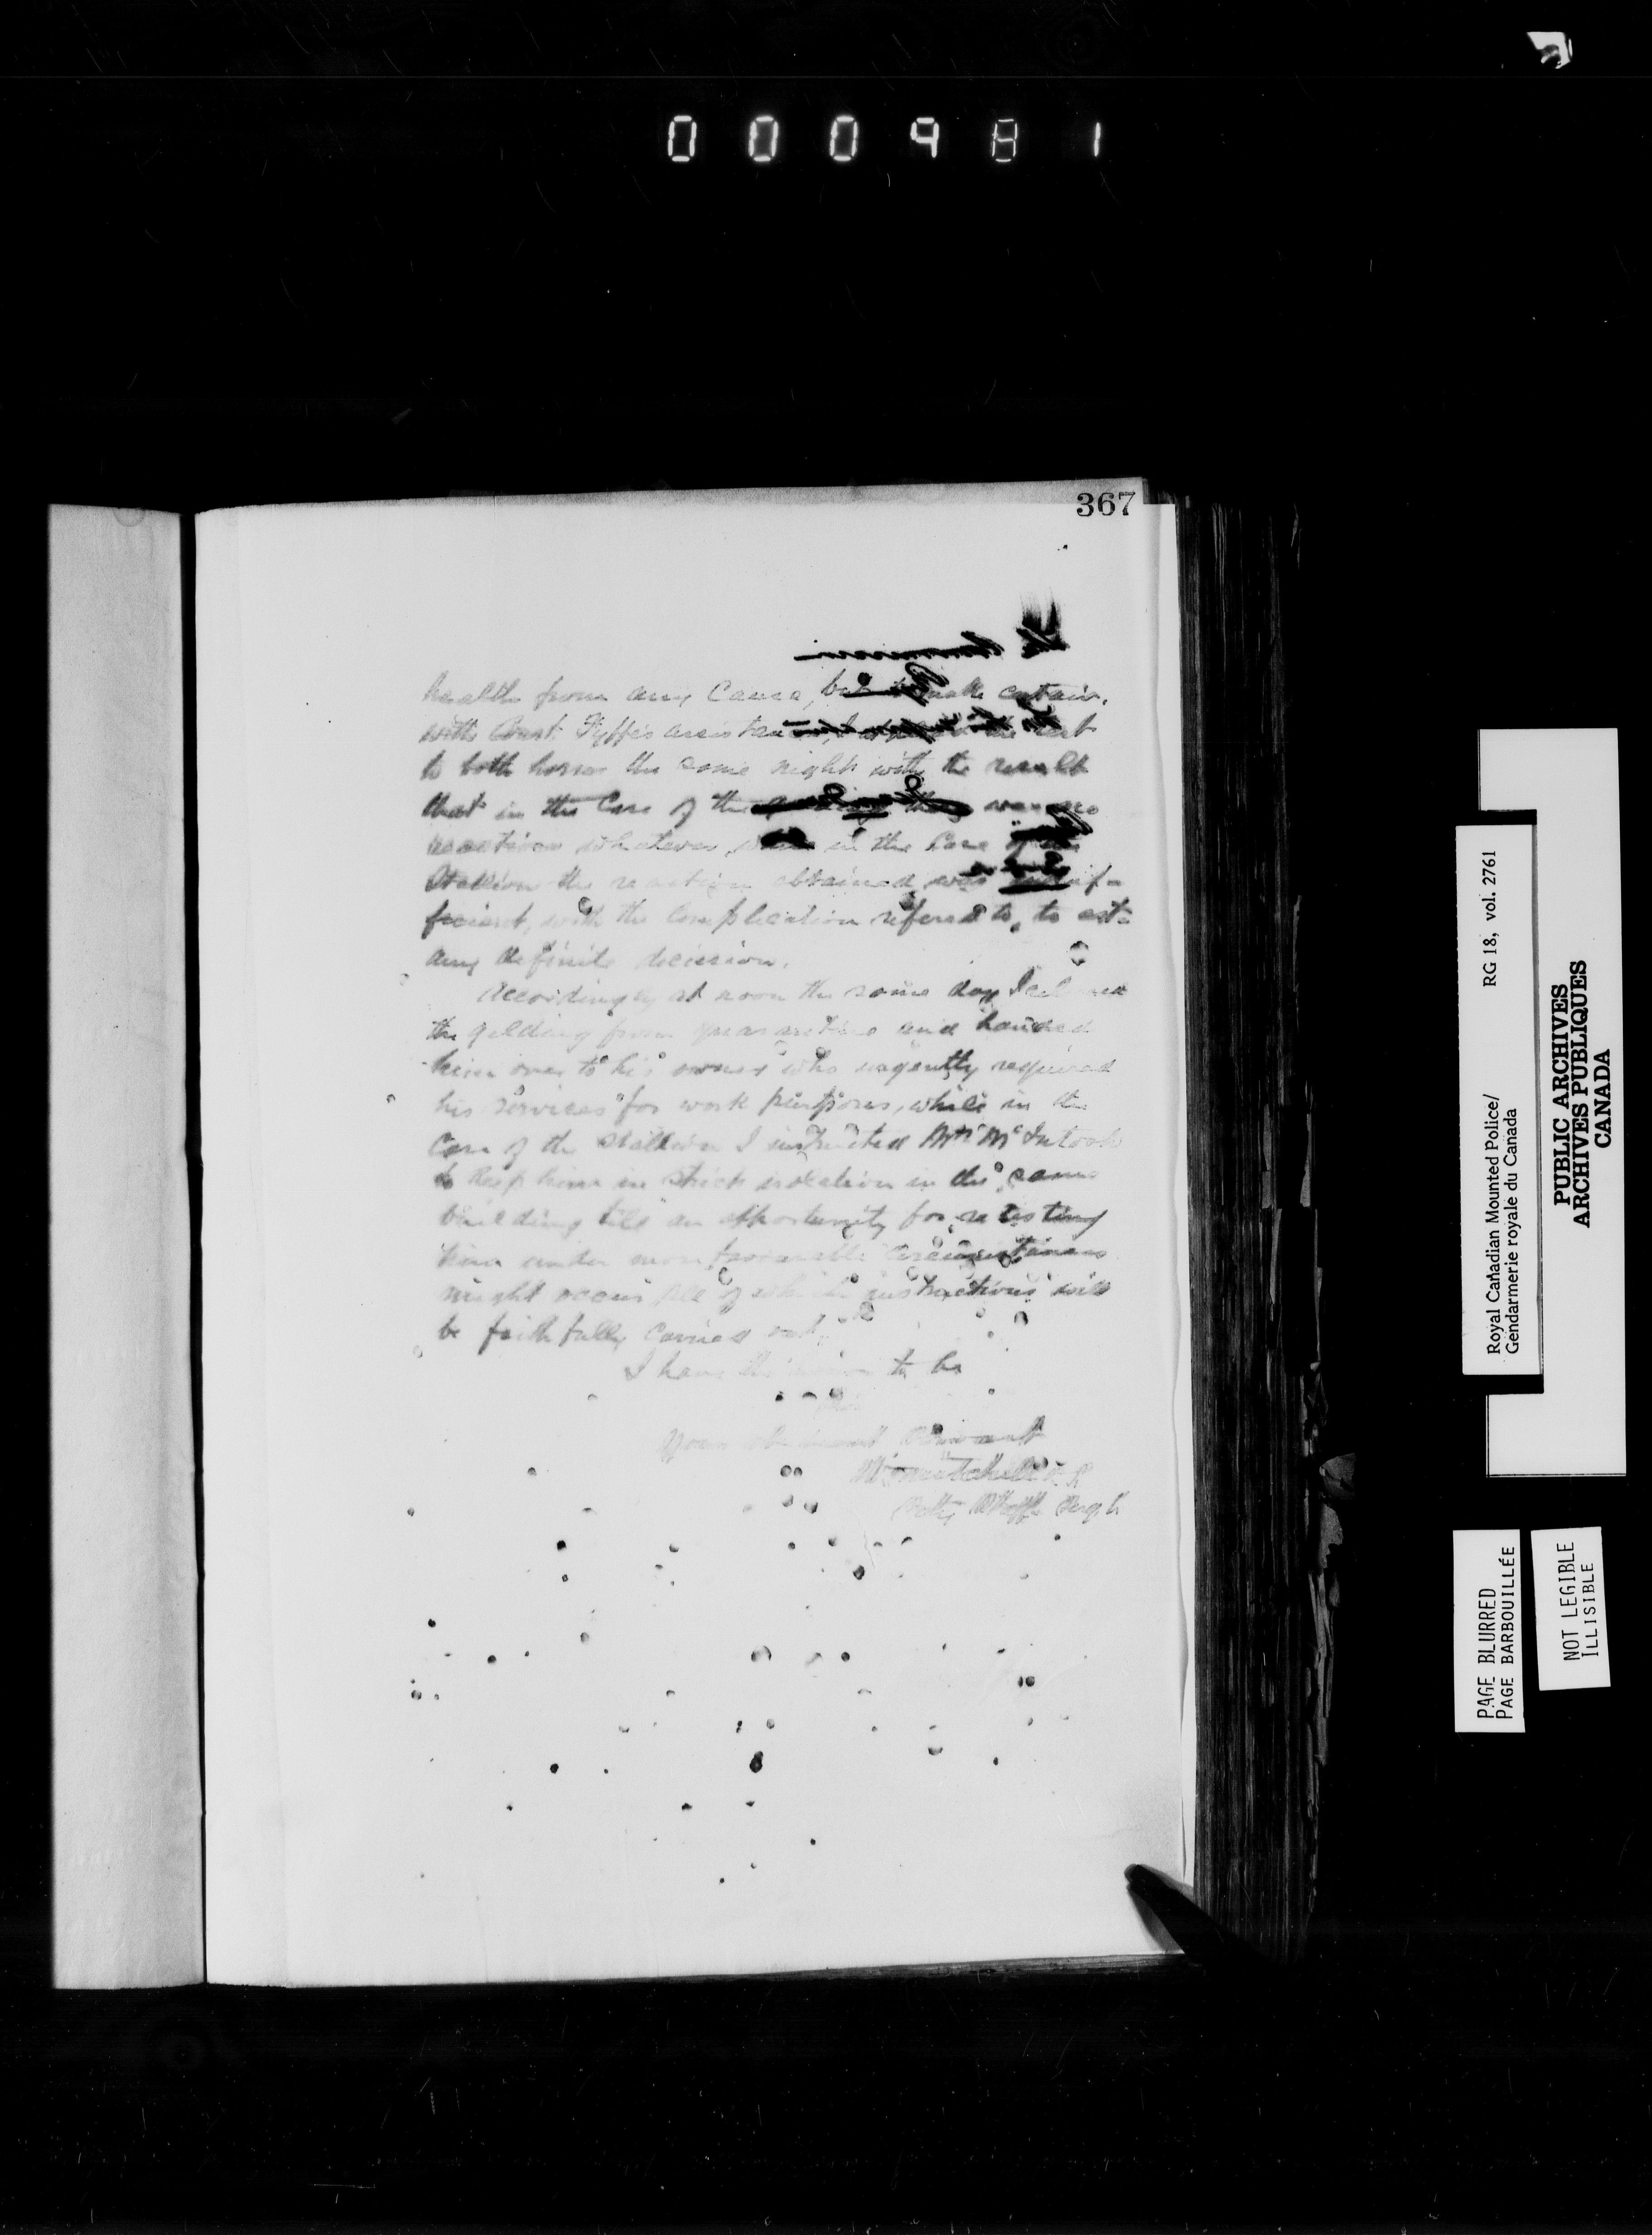 000981
367
health from any Cause, but to make certain,
with Const. Fyffe's assistance, I the test
to both horses the same night with the result
that in the Case of the gelding there was no
reaction whatever, while in the Case of the
Stallion the reaction obtained was insuf-
ficient, with the Complication referred to, to
any definite decision.
Accordingly at noon the same day I released
the gelding from quarantine and handed
him over to his owner who urgently required
his services for work purposes, while in the
Case of the Stallion I instructed McIntosh
to keep him in strict isolation in the same
building till an opportunity for retesting
him under more favourable Circumstances
might occur, all of which instructions will
be faithfully Carried out.
I have the honor to be
Your obedient Servant
Mitchell
Staff Sergt
Royal Canadian Mounted Police/
Gendarmerie royale du Canada
RG 18, vol. 2761
PUBLIC ARCHIVES
ARCHIVES PUBLIQUES
CANADA
PAGE BLURRED
PAGE BARBOUILLÉE
NOT LEGIBLE
ILLISIBLE